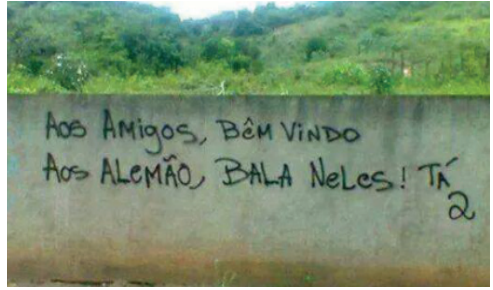 Aos Amigos, BêM VINDO
Aos ALEMÃO, BALA NELES! TÁ
2